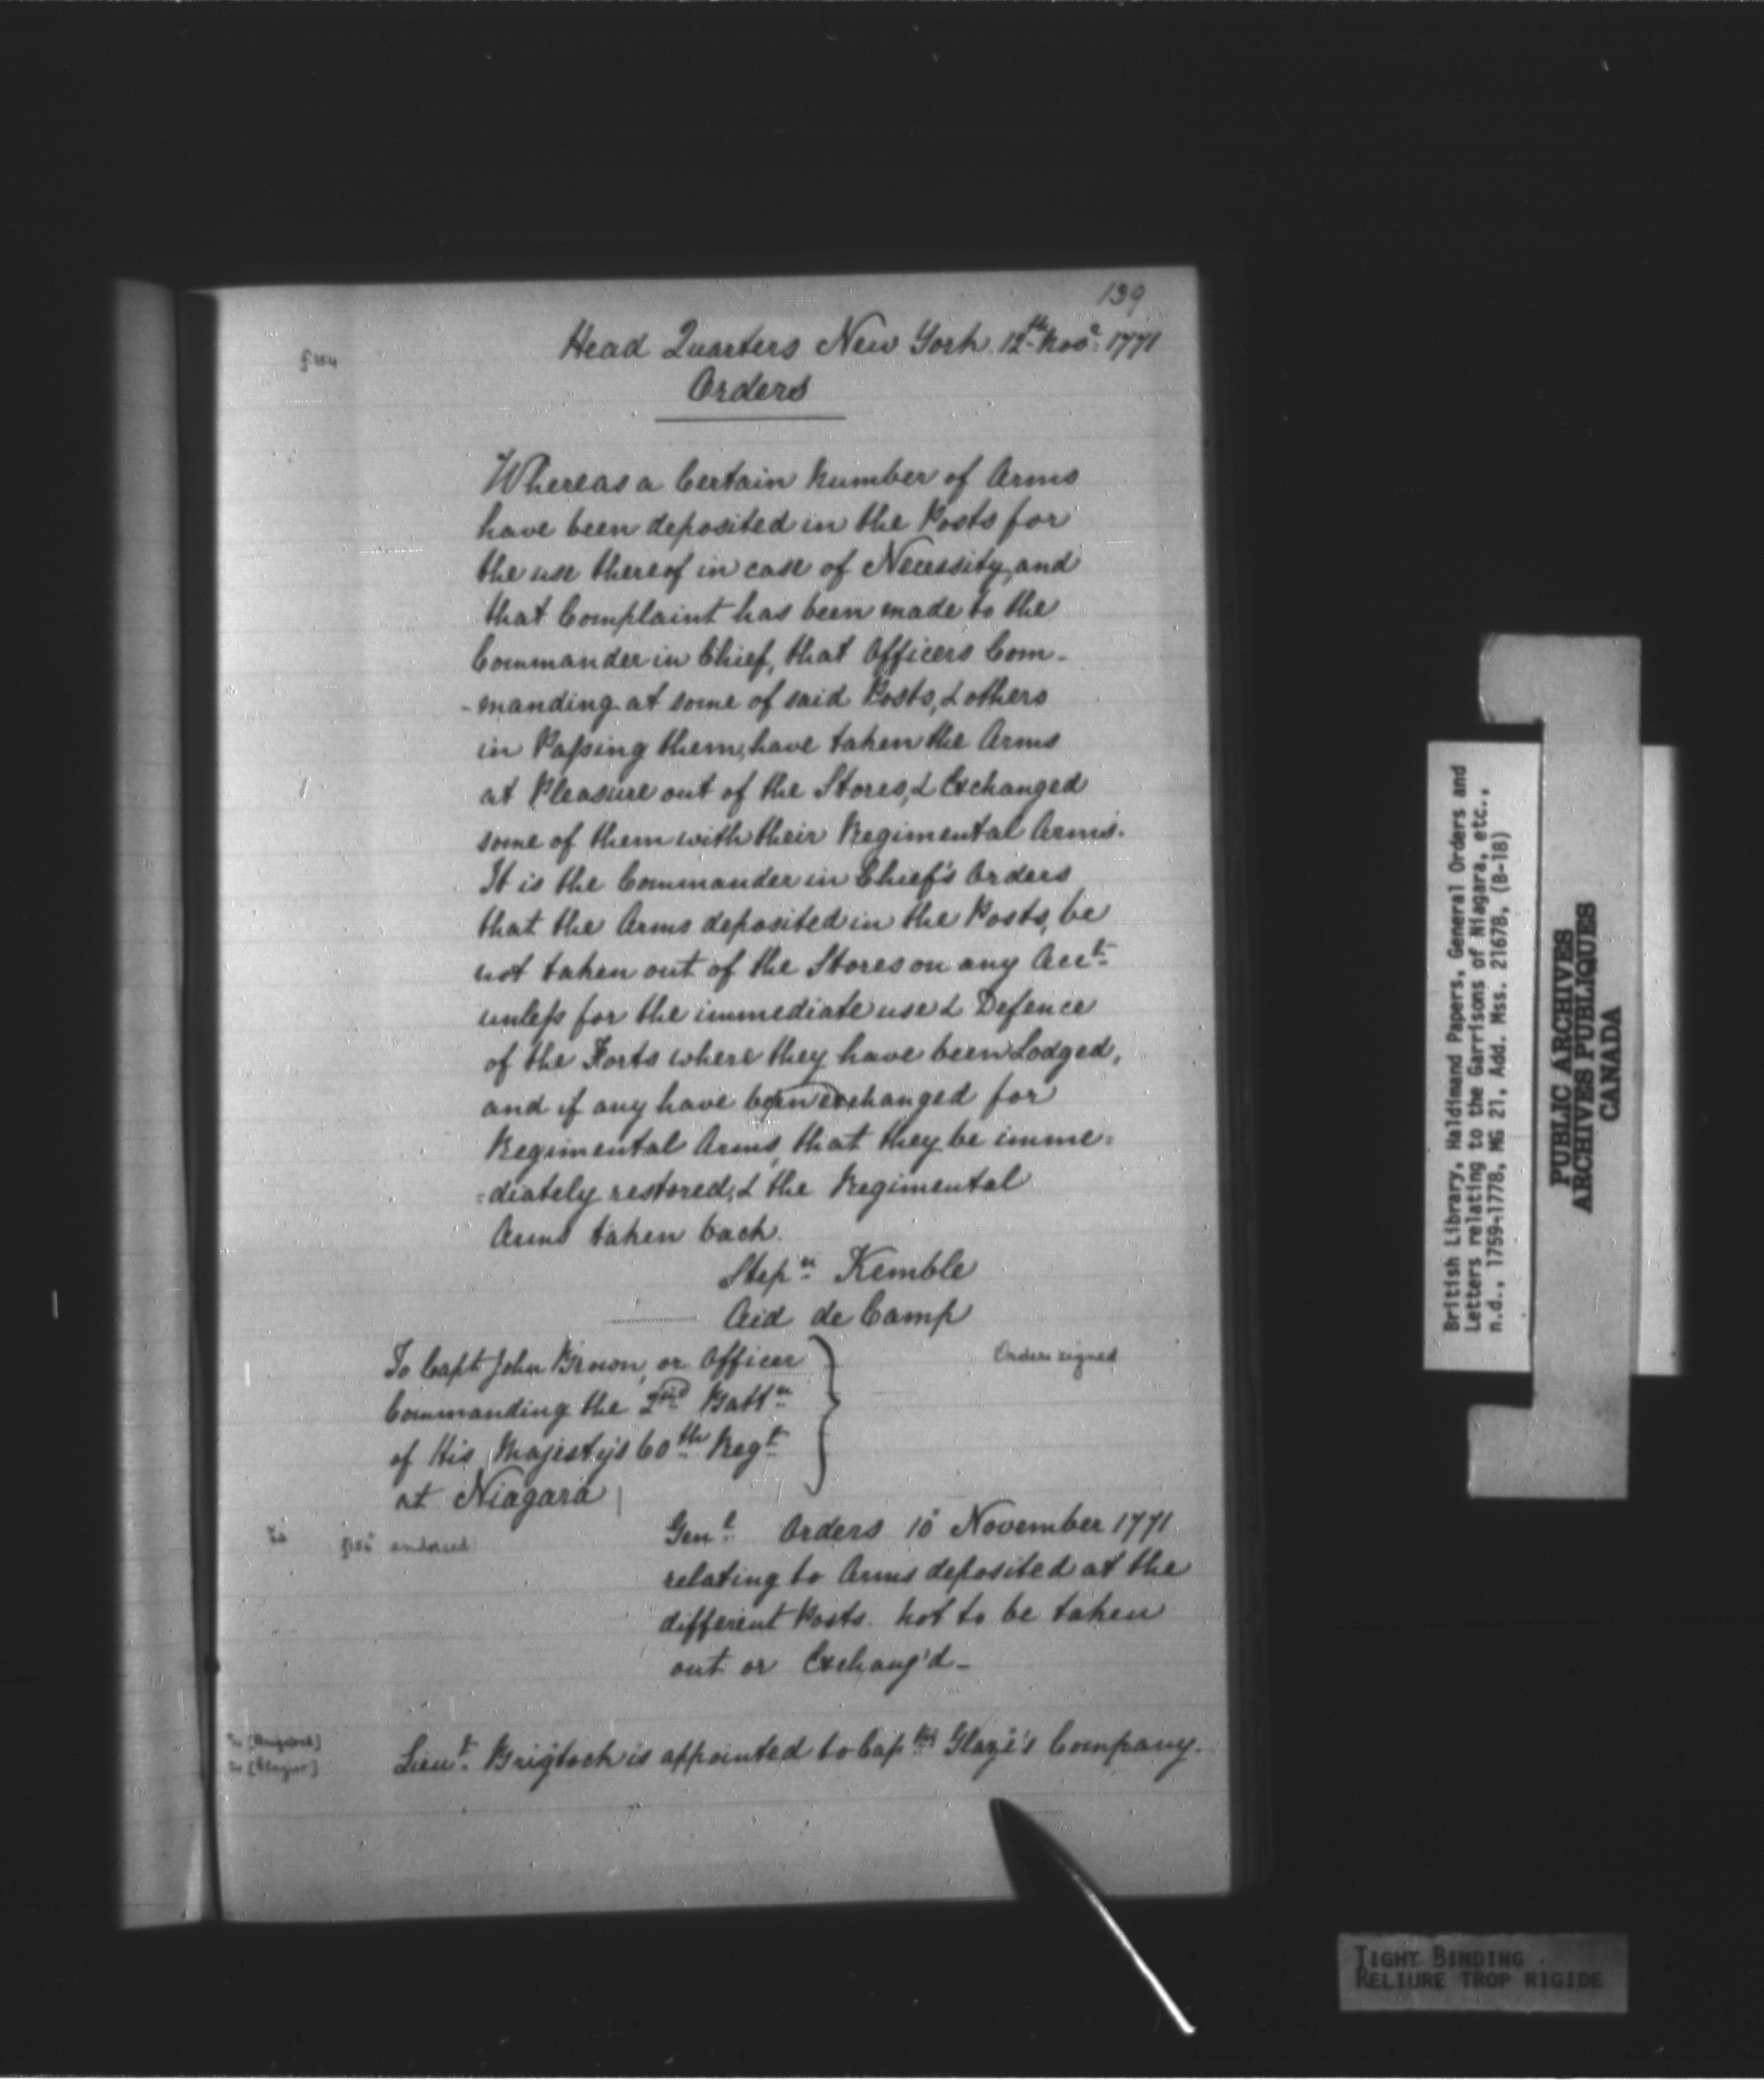 139
f 154
Head Quarters New York 12th Novr 1771
Orders
Whereas a Certain Number of Arms
have been deposited in the Posts for
the use thereof in case of Necessity, and
that Complaint has been made to the
Commander in Chief, that Officers Com-
-manding at some of said Posts, & others
in Passing them, have taken the Arms
at Pleasure out of the Stores, & Exchanged
some of them with their Regimental Arms.
It is the Commander in Chief's Orders
that the Arms deposited in the Posts, be
not taken out of the Stores on any Acct
unless for the immediate use & Defence
of the Forts where they have been Lodged,
and if any have been exchanged for
Regimental Arms, that they be imme=
=diately restored, & the Regimental
Arms taken back.
Stepn Kemble
Aid de Camp
Orders signed
To Capt John Brown, or Officer
Commanding the 2nd Battn
of His Majesty's 60th Regt
at Niagara
f155 endorsed
Genl Orders 10 November 1771
relating to Arms deposited at the
different Posts. not to be taken
out or Exchang'd -
Lieut Brigtock is appointed to Captns Glazi's Company.
British Library, Haldimand Papers, General Orders and
Letters relating to the Garrisons of Niagara, etc.,
n.d., 1759-1778, MG 21, Add. Mss. 21678, (B-18)
PUBLIC ARCHIVES
ARCHIVES PUBLIQUES
CANADA
TIGHT BINDING
RELIURE TROP RIGIDE